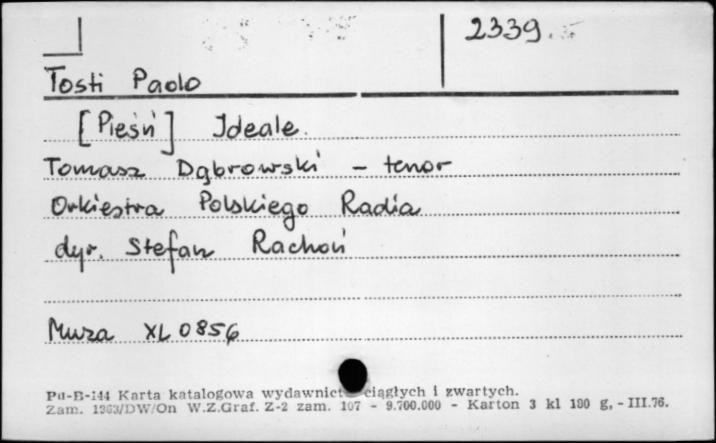 2339.
Tosti Paolo
[Pieśń] Ideale.
Tomasz Dąbrowski - tenor
Orkiestra Polskiego Radia
dyr. Stefan Rachoń
Muza XL 0856
Pu-B-144 Karta katalogowa wydawnictw ciągłych i zwartych.
Zam. 1363/DW/On W.Z.Graf. Z-2 zam. 107 - 9.700.000 - Karton 3 kl 180 g, - III.76.